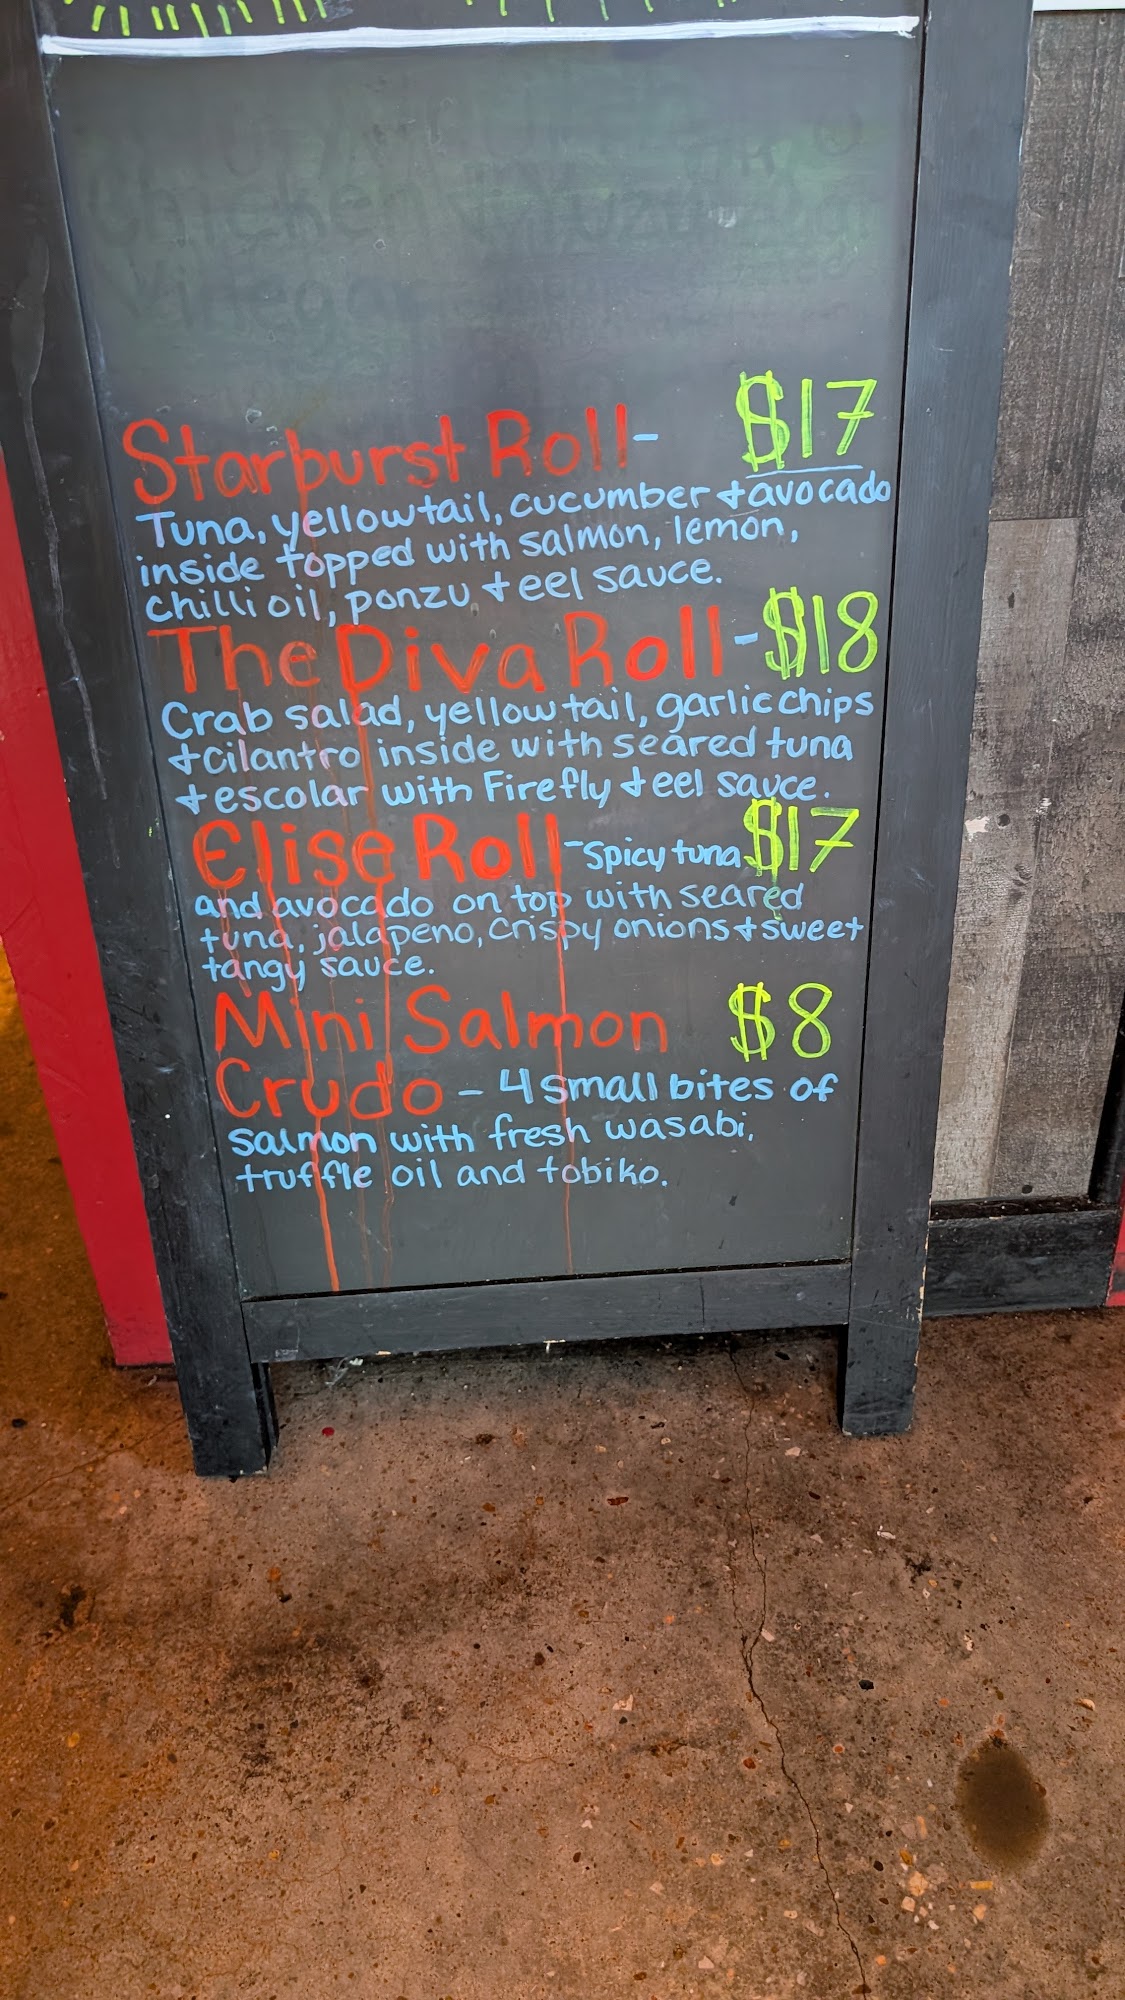 Starburst Roll- $17
Tuna, yellowtail, cucumber + avocado
inside topped with salmon, lemon,
chilli oil, ponzu + eel sauce.
The Diva Roll-$18
Crab salad, yellowtail, garlic chips
+ cilantro inside with seared tuna
+ escolar with Firefly + eel sauce.
Elise Roll-spicy tuna $17
and avocado on top with seared
tuna, jalapeno, crispy onions + sweet
tangy sauce.
Mini Salmon $8
Crudo - 4 small bites of
salmon with fresh wasabi,
truffle oil and tobiko.